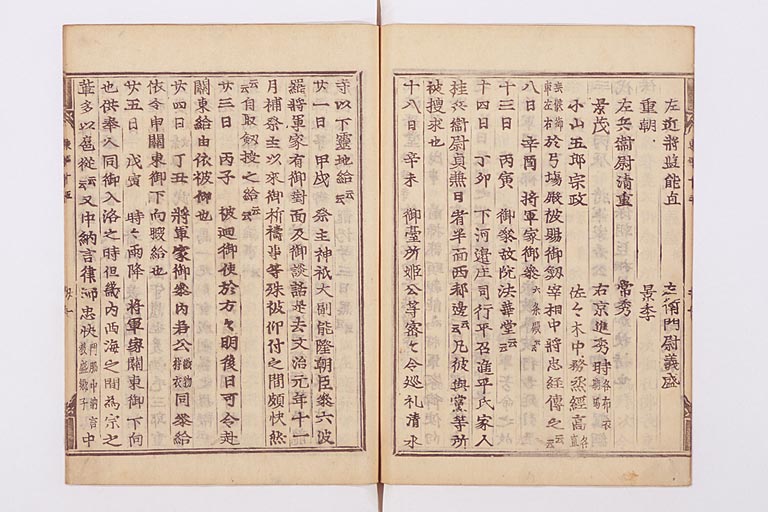 左近將監能直　左衛門尉義盛
重朝　景季
左兵衛尉清重　常秀
景茂　右京進季時 各布衣騎馬
小山五郎宗政　佐々木中務丞經高 各直垂
御車左右 於弓場殿被賜御劔宰相中將忠經傳之云云
八日　辛酉　將軍家御參 六條殿云云
十三日　丙寅　御參故院法華堂云云
十四日　丁卯　下河邊庄司行平召進平氏家人
桂兵衞尉貞兼日者半面西郡邊云云凡彼與黨等所
被搜求也
十八日　辛未　御臺所姬公等密々令巡礼清水
寺以下靈地給云云
廿一日　甲戌　祭主神祇大副能隆朝臣參六波
羅將軍家有御對面及御談話是去文治元年十一
月補祭主以來御祈禱事等殊被仰付之間頗快然
云云自取劔授之給云云
廿三日　丙子　被廻御使於方々明後日可令赴
關東給由依被仰也
廿四日　丁丑　將軍家御參內若公 織物狩衣 同參給
依令申關東御下向暇給也
廿五日　戊寅　時々雨降　將軍家關東御下向
也供奉人同御入洛之時但畿內西海之間為宗之
輩多以扈從云云又中納言律師忠快 門脇中納言教盛卿子 中